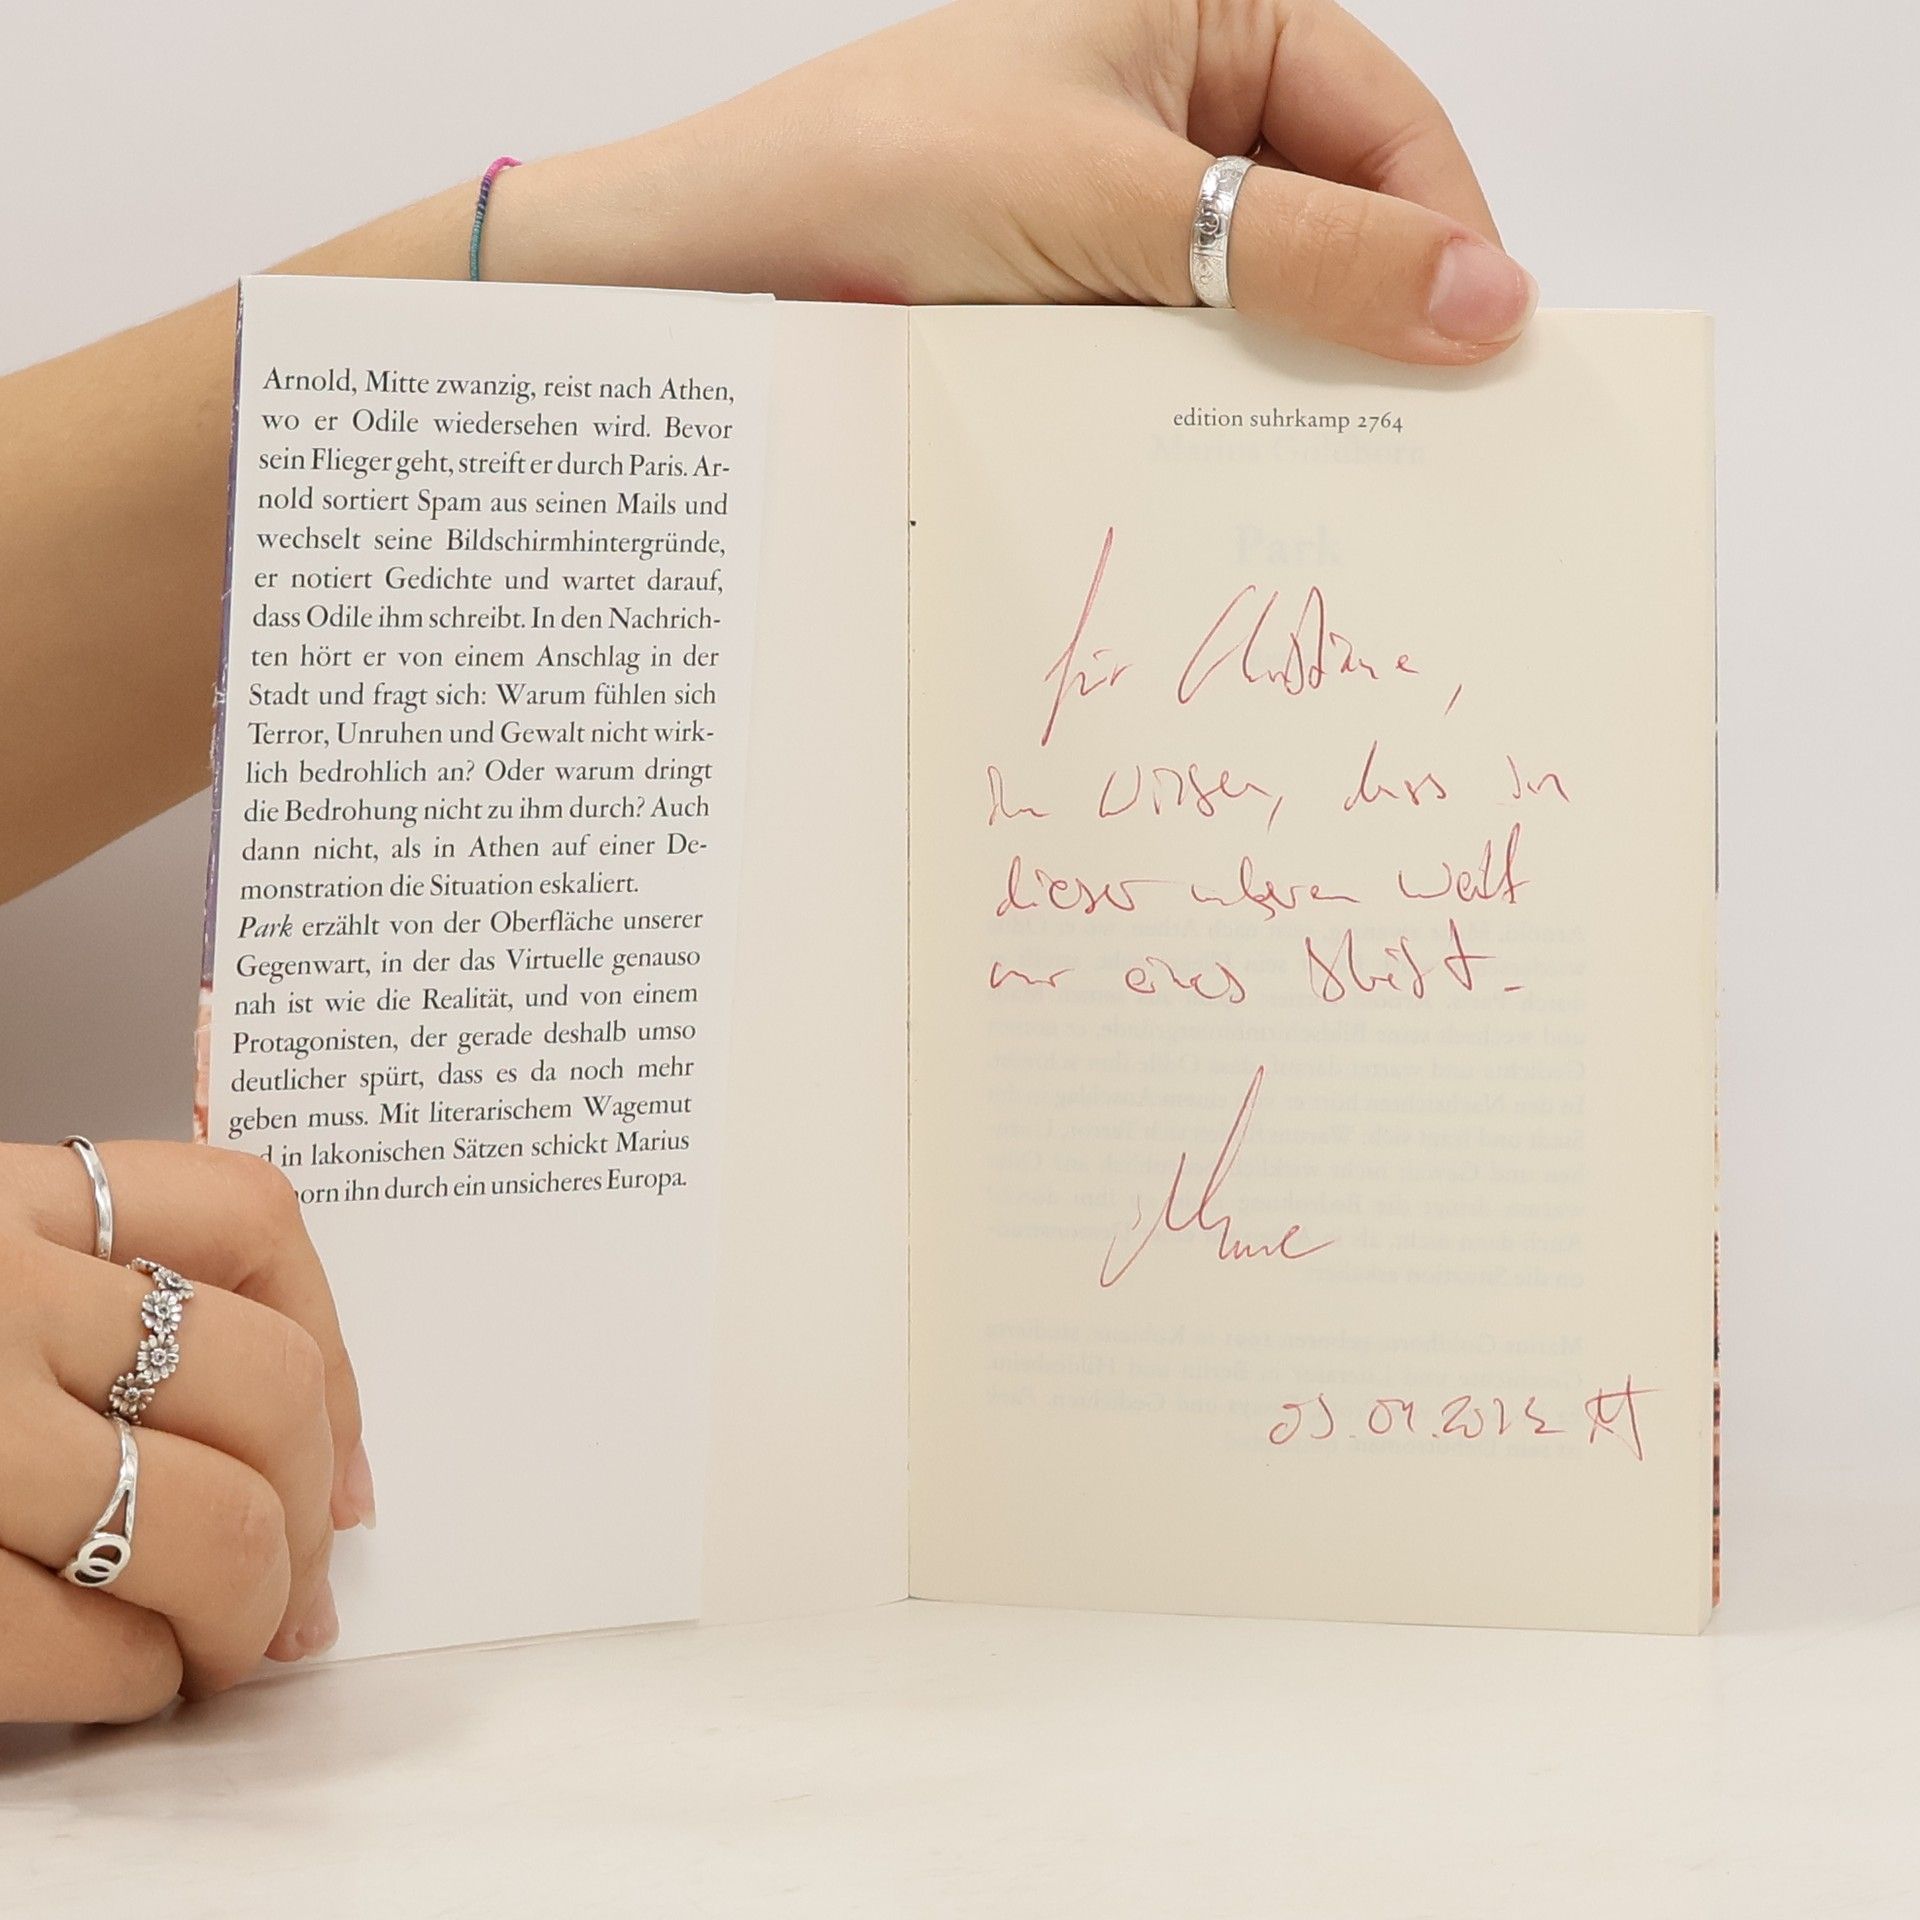 Arnold, Mitte zwanzig, reist nach Athen,
wo er Odile wiedersehen wird. Bevor
sein Flieger geht, streift er durch Paris. Ar-
nold sortiert Spam aus seinen Mails und
wechselt seine Bildschirmhintergründe,
er notiert Gedichte und wartet darauf,
dass Odile ihm schreibt. In den Nachrich-
ten hört er von einem Anschlag in der
Stadt und fragt sich: Warum fühlen sich
Terror, Unruhen und Gewalt nicht wirk-
lich bedrohlich an? Oder warum dringt
die Bedrohung nicht zu ihm durch? Auch
dann nicht, als in Athen auf einer De-
monstration die Situation eskaliert.
Park erzählt von der Oberfläche unserer
Gegenwart, in der das Virtuelle genauso
nah ist wie die Realität, und von einem
Protagonisten, der gerade deshalb umso
deutlicher spürt, dass es da noch mehr
geben muss. Mit literarischem Wagemut
in lakonischen Sätzen schickt Marius
ihn durch ein unsicheres Europa.
edition suhrkamp 2764
Park
für Christiane,
Im Wissen, dass in
dieser unseren Welt
nur eines bleibt.